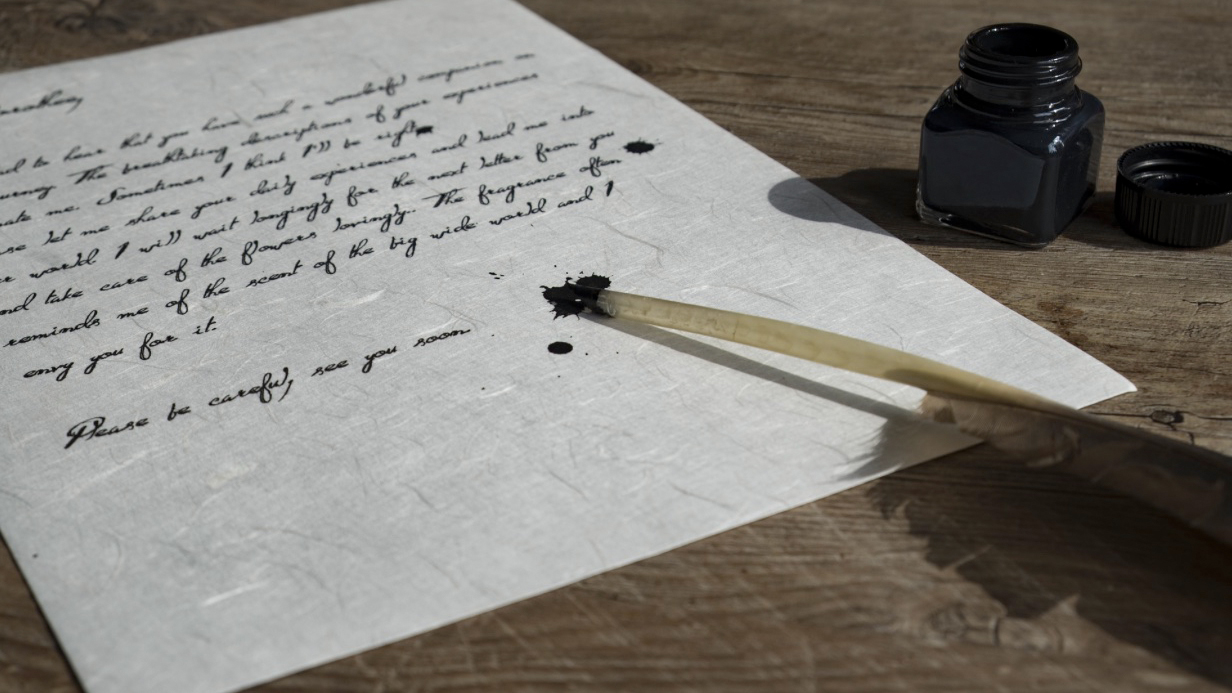 to hear that you have such a wonderful companion on
The breathtaking descriptions of your experiences
me. Sometimes I think I'll be right
let me share your daily experiences and lead me into
world I will wait longingly for the next letter from you
take care of the flowers lovingly. The fragrance often
reminds me of the scent of the big wide world and I
envy you for it.
Please be careful, see you soon